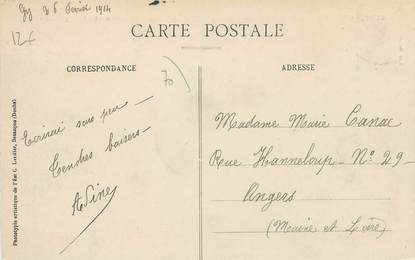 Gy 26 Avril 1914
12€
CARTE POSTALE
CORRESPONDANCE
ADRESSE
70
Ecrirai sous peu —
Tendres baisers —
Madame Marie Canac
Rue Hanneloup - N° 29
Angers
(Maine et Loire)
Phototypie artistique de l'Edit. C. Lardier, Besançon (Doubs)